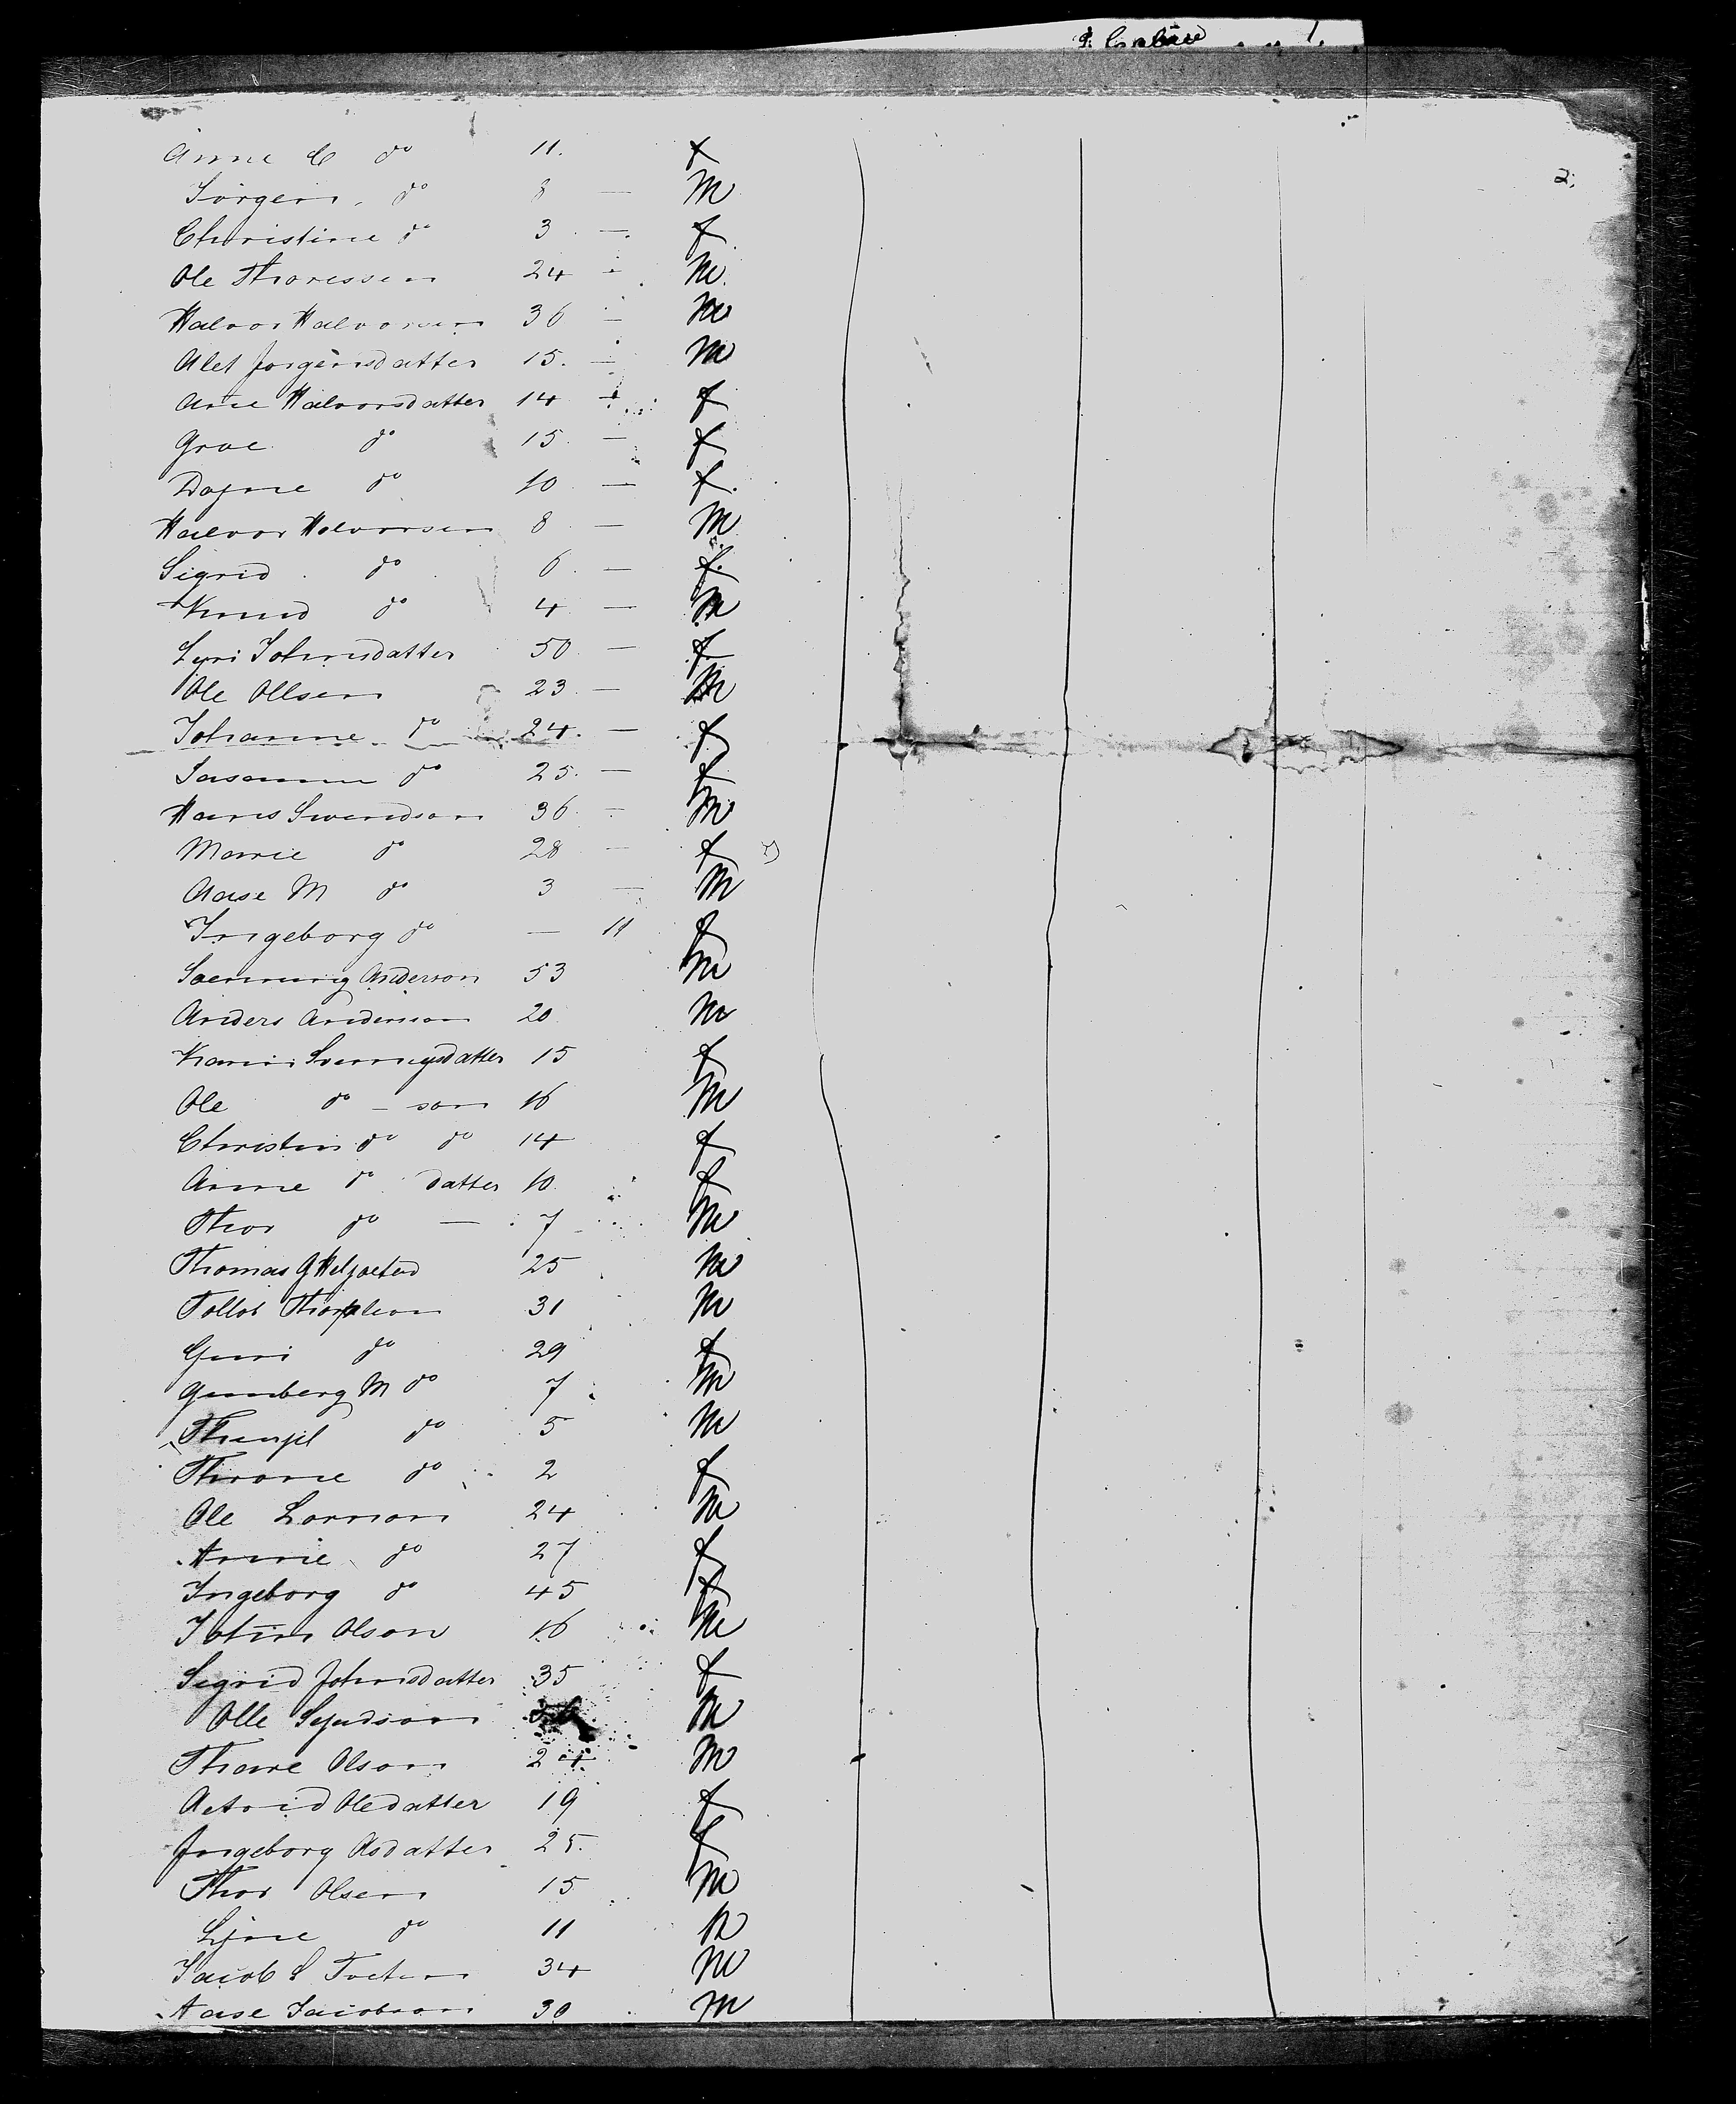 2;
Anne C do 11. f
Jörgen, do 8 — m
Christine do 3. —. f
Ole Thoressen 24 - m
Halvor Halvorsen 36 — m
Alet Jorgensdatter 15. — m
Ane Halvorsdatter 14 - f
Groe do 15. — f
Dagne do 10 — f.
Halvor Halvorsen 8 — m
Sigrid do 6. — f.
Knud do 4 — m
Johnsdatter 50 — f
Ole Ollsen 23. — m
Johanne do 24. — f
do 25. — f
Hans Swendson 36. — m
Marrie do 28 — f
Aase M do 3 — m
Ingeborg do — 11 f
Anderson 53 m
Anders Anderson 20 m
15 f
Ole do - son 16 m
Christen do do 14 f
Anne do datter 10. f
Thor do — 7 m
Thomas G 25 m
31 m
Guri do 29 f
Gunberg M do 7 m
do 5 m
Throne do 2 f
Ole Larson 24 m
Annie do 27 f
Ingeborg do 45 f
John Olson 16 m
Sigrid Johnsdatter 35 f
Olle m
Thore Olson 24. m
Astrid Oledatter 19 f
Ingeborg Osdatter 25. f
Thor Olsen 15 m
do 11 m
Jacob S 34 m
Aase Jacobson 30 m